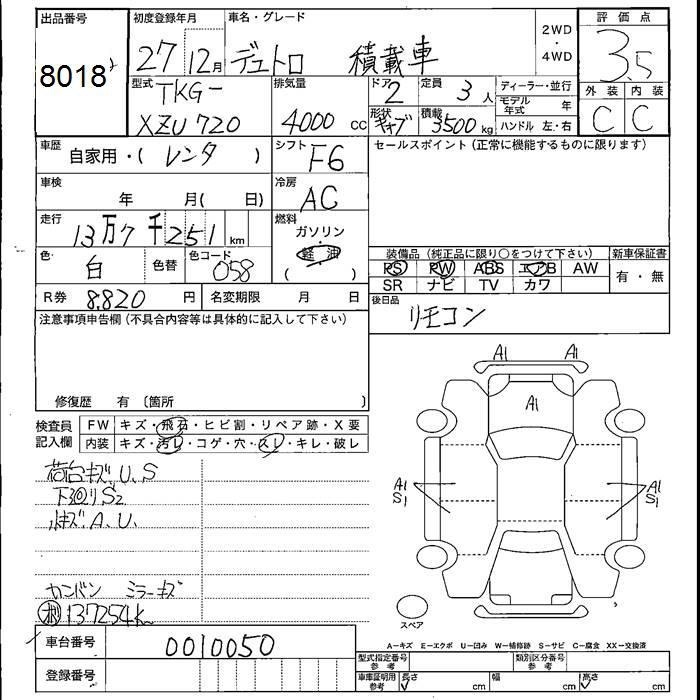 出品番号 初度登録年月 車名・グレード 2WD ・ 4WD 評価点
8018 27 12月 デュトロ 積載車 3.5
型式 排気量 ドア 定員 ディーラー・並行 外装 内装
TKG- 2 3人 モデル年式 年
XZU720 4000cc 形状 キャブ 積載 3500kg ハンドル 左・右 C C
車歴 自家用・( レンタ ) シフト F6 セールスポイント (正常に機能するものに限ります)
車検 年 月( 日) 冷房 AC
走行 13万7千251km 燃料 ガソリン・軽油 ( )
色 白 色替 色コード 058 装備品 (純正品に限り○をつけて下さい) 新車保証書
PS PW ABS エアB AW 有・無
SR ナビ TV カワ
R券 8,820円 名変期限 月 日 後日品 リモコン
注意事項申告欄 (不具合内容等は具体的に記入して下さい)
修復歴 有 〔箇所 〕
検査員記入欄 FW キズ・飛石・ヒビ割・リペア跡・X要
内装 キズ・汚レ・コゲ・穴・スレ・キレ・破レ
A1 A1
A1
荷台キズ.U.S
下廻りS2
A1 S1 A1 S1
キズ A.U.
カンバン ミラーキズ
137254k
スペア
車台番号 0010050
A−キズ E−エクボ U−凹み W−補修跡 S−サビ C−腐食 XX−交換済
型式指定番号 参考 類別区分番号 参考
登録番号 車庫証明用 参考 長さ cm 幅 cm 高さ cm